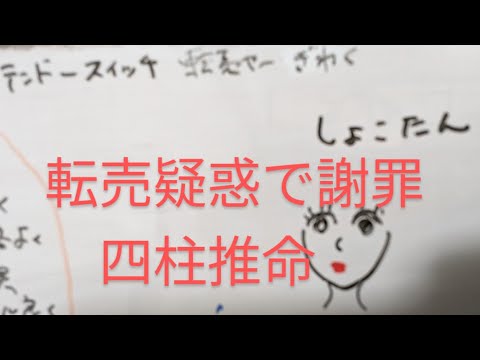 テンドースイッチ 転売ヤー ぎわく
しょこたん
転売疑惑で謝罪
四柱推命